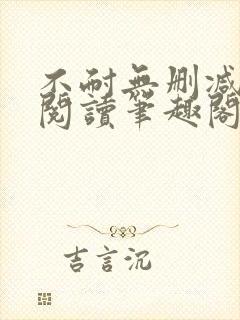 不耐無刪減
閱讀筆趣閣
吉言沉